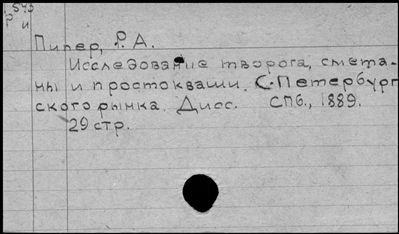 543
Р и
Пипер, Р. А.
Исследование творога, смета-
ны и простокваши. С-Петербург
ского рынка. Дисс. СПб., 1889.
29 стр.